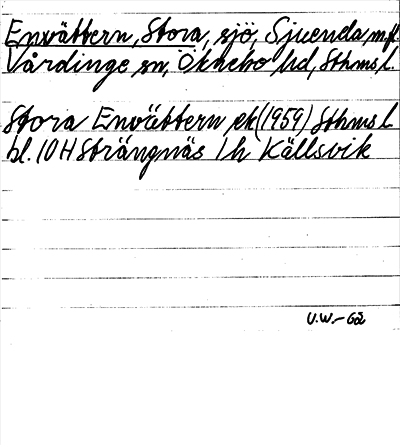 Envättern, Stora, sjö, Sjuenda m.fl.
Vårdinge sn, Öknebo hd, Sthms l.
Stora Envättern ek (1959) Sthms l.
bl. 10H Strängnäs 1h Källsvik
U.W.- 62